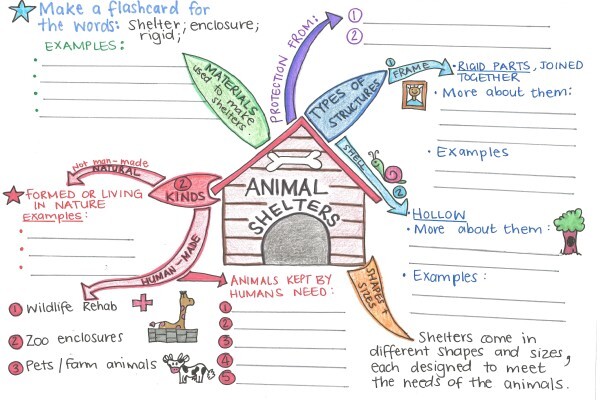 Make a flashcard for
the words: Shelter; enclosure;
rigid;
EXAMPLES:
MATERIALS
used to make
shelters
PROTECTION FROM:
①
②
TYPES OF
STRUCTURES
① FRAME
• RIGID PARTS, JOINED
TOGETHER
• More about them:
• Examples
SHELL
②
• HOLLOW
• More about them:
• Examples:
ANIMAL
SHELTERS
② KINDS
Not man-made
NATURAL
FORMED OR LIVING
IN NATURE
Examples:
HUMAN-MADE
① Wildlife Rehab
② Zoo enclosures
③ Pets/farm animals
ANIMALS KEPT BY
HUMANS NEED:
①
②
③
④
⑤
SHAPES +
SIZES
Shelters come in
different shapes and sizes,
each designed to meet
the needs of the animals.